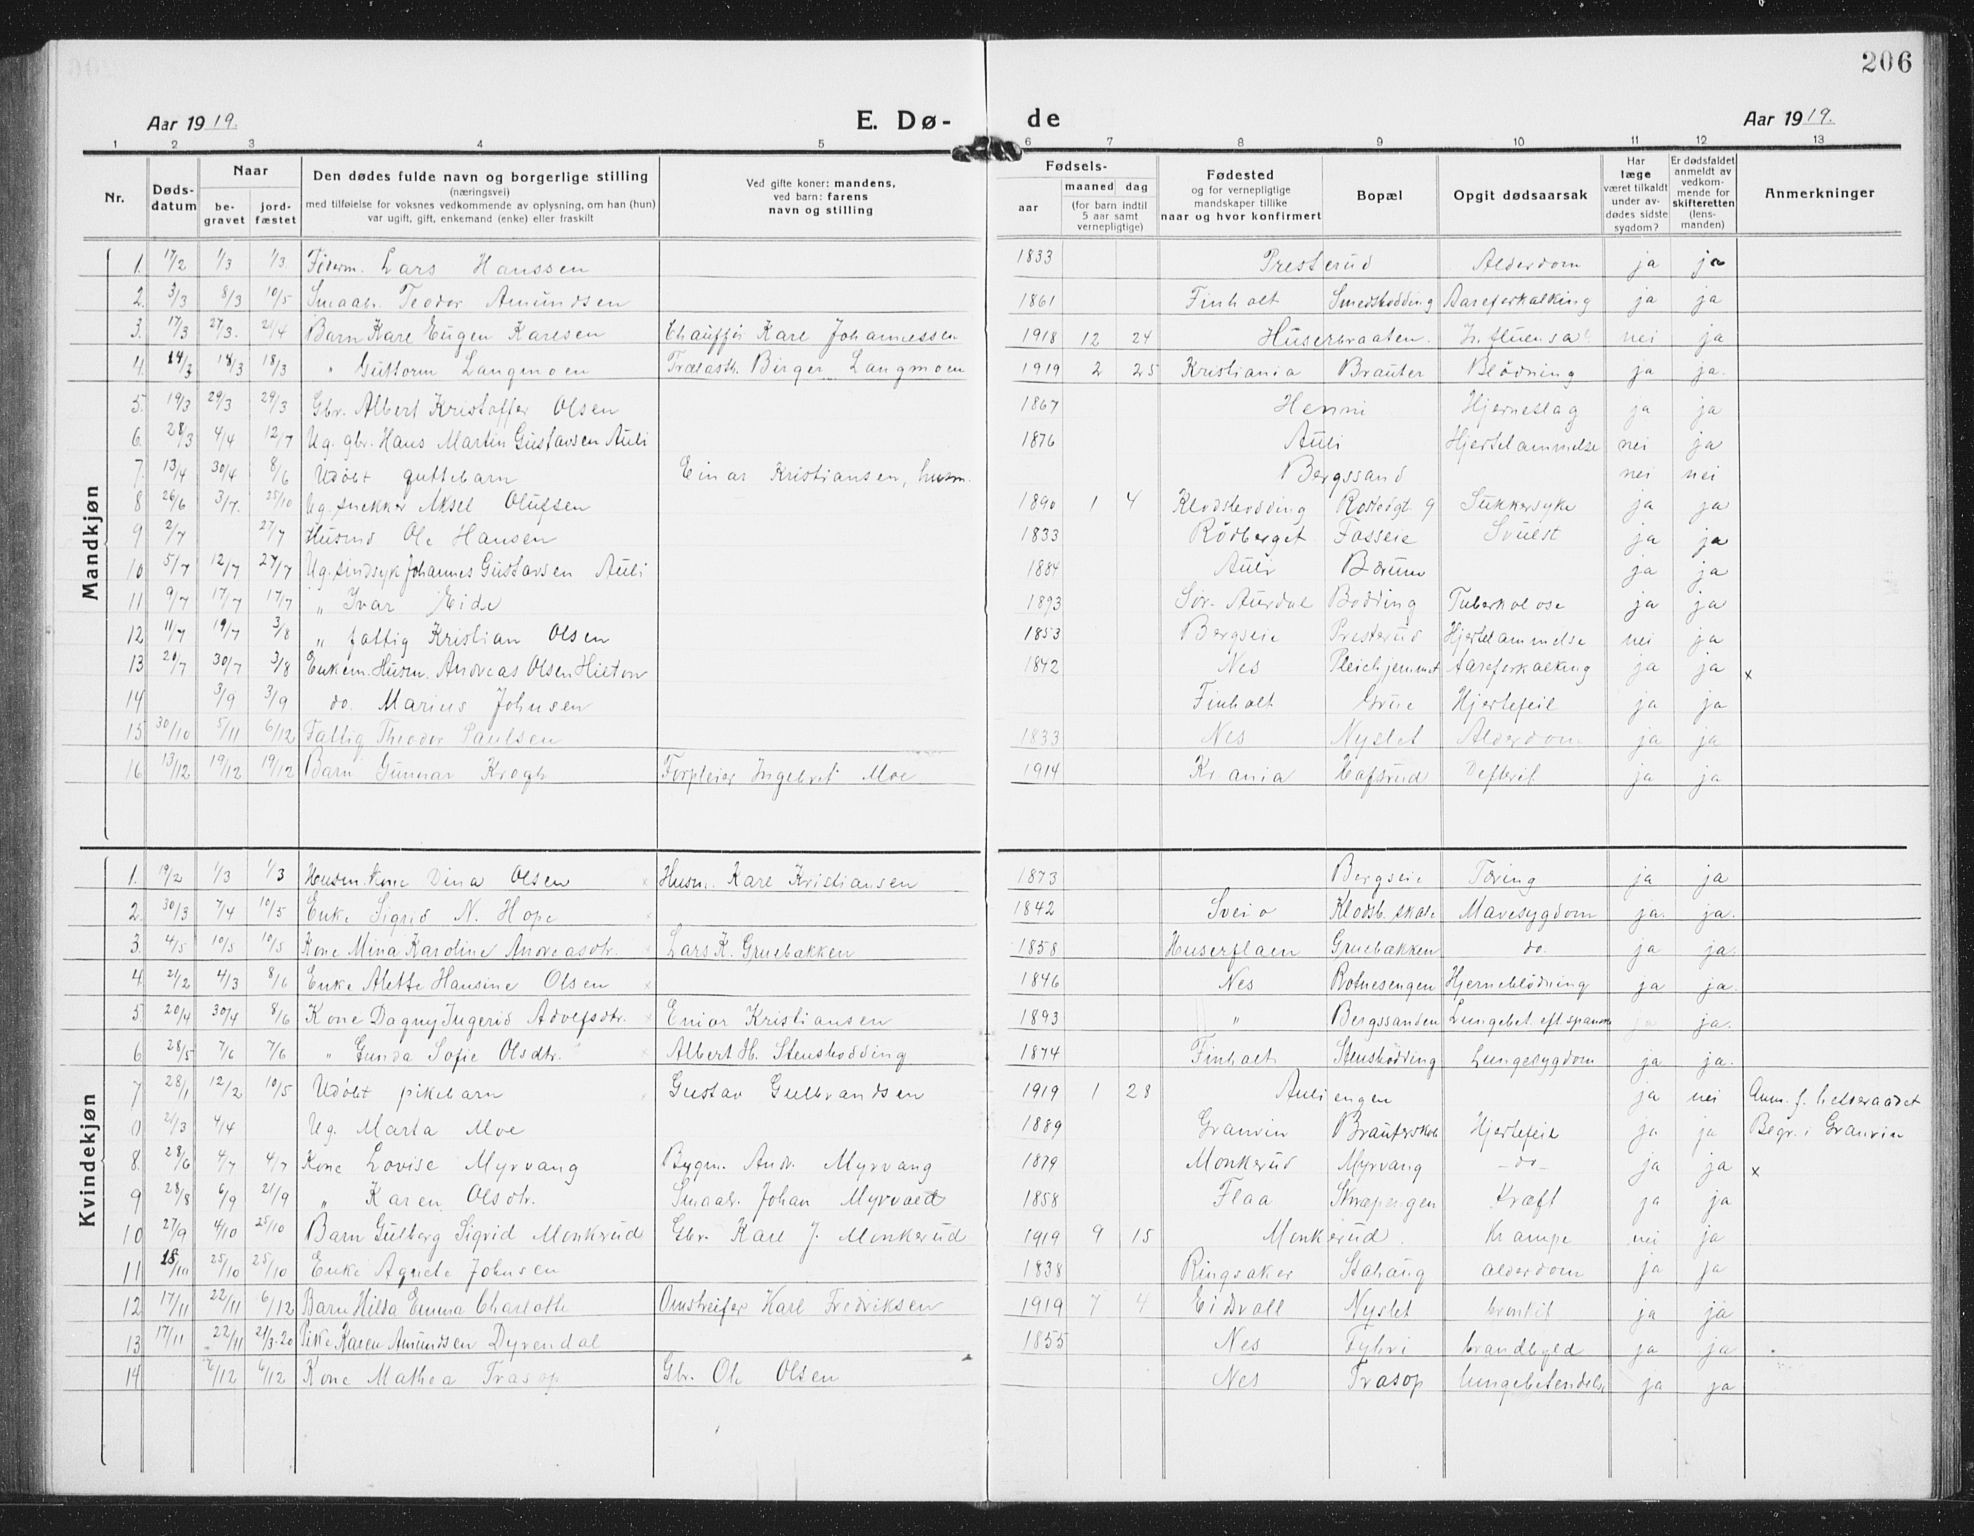 206
Aar 1919. E. Dø- de Aar 1919.
1 2 3 4 5 6 7 8 9 10 11 12 13
Nr. Døds-datum Naar be-gravet jord-fæstet Den dødes fulde navn og borgerlige stilling (næringsvei) med tilføielse for voksnes vedkommende av oplysning, om han (hun) var ugift, gift, enkemand (enke) eller fraskilt Ved gifte koner: mandens, ved barn: farens navn og stilling Fødsels- aar maaned dag (for barn indtil 5 aar samt vernepligtige) Fødested og for vernepligtige mandskaper tillike naar og hvor konfirmert Bopæl Opgit dødsaarsak Har læge været tilkaldt under av-dødes sidste sygdom? Er dødsfaldet anmeldt av vedkom-mende for skifteretten (lens-manden) Anmerkninger
Mandkjøn
1. 17/2 1/3 1/3. Føderm. Lars Hanssen 1833 Presterud Alderdom ja ja
2. 3/3 8/3 10/5 Smaabr. Teodor Amundsen 1861 Finholt Smedsbødding Aareforkalking ja ja
3. 17/3 27/3. 21/4 Barn Kare Eugen Karlsen Chauffør Karl Johannessen 1918 12 24 Huserbraaten. Influensa nei ja
4. 14/3 18/3 18/3 " Guttorm Langmoen Trælasth. Birger Langmoen 1919 2 25 Kristiania Brauter Blødning ja ja.
5. 19/3 29/3 29/3 Gbr. Albert Kristoffer Olsen 1867 Henni Hjerneslag ja ja
6. 28/3 4/4 12/7 Ug. gbr. Hans Martin Gustavsen Auli 1876 Auli Hjertelammelse nei ja
7. 13/4 30/4 8/6 Udøbt guttebarn Einar Kristiansen, husm. Bergssand nei nei
8 26/6 3/7. 25/10 Ug. snekker Aksel Olufsen 1890 1 4 Klodsbødding Sukkersyke ja ja
9 2/7 27/7 Husmd Ole Hansen 1833 Rødberget Fosseie Svulst ja ja
10 5/7 12/7 27/7 Ug. sindsyk Johannes Gustavsen Auli 1884 Auli Bærum ja ja
11 9/7 17/7 17/7 " Ivar Eide 1893 Sør-Aurdal Bødding Tuberkolose ja ja
12 11/7 19/7 3/8 " fattig Kristian Olsen 1853 Bergseie Presterud Hjertelammelse nei ja
13 20/7 30/7 3/8 Enkem. Husm. Andreas Olsen Hieton 1842 Nes Pleiehjemmet Aareforkalking ja ja x
14 3/9 3/9 do. Marius Johnsen Finholt Grue Hjertefeil ja ja
15 30/10 5/11 6/12 Fattig Theodor Paulsen 1833 Nes Nyslet Alderdom. ja ja
16 13/12 19/12 19/12 Barn Gunnar Krogh Forpleier Ingebret Moe 1914 Kr.ania Hafsrud Defterit ja ja
Kvindekjøn
1. 19/2 1/3 1/3 Husm. kone Dina Olsen x Husm. Karl Kristiansen 1873 Bergseie Tæring ja ja
2. 30/3 7/4 10/5 Enke Sigrid N. Hope x 1842 Sveio Klodsb. skole Mavesygdom ja. ja.
3. 4/5 10/5 10/5 Kone Mina Karoline Andreasdtr. x Lars K. Gruebakken 1858 Huserflaen Gruebakken do. ja ja.
4. 21/2 4/3 8/6 Enke Alette Hansine Olsen x 1846 Nes Rotnesengen Hjerneblødning ja ja.
5. 20/4 30/4 8/6 Kone Dagny Ingerid Adolfsdtr. x Einar Kristiansen 1893 " Bergssanden Lungebet. eft. spansk ja ja.
6 28/5 7/6 7/6 " Gunda Sofie Olsdtr. Albert H. Stensbødding 1874 Finholt Stensbødding Lungesygdom ja ja.
7 28/1 12/2 10/5 Udøbt pikebarn Gustav Gulbrandsen 1919 1 28 Auliengen ja nei Anm. f. helseraadet
0 2/3 4/4 Ug. Marta Moe 1889 Granvin Brauterskole Hjertefeil ja ja Begr. i Granvin
8. 28/6 4/7 4/7 Kone Lovise Myrvang Bygm. Andr. Myrvang 1879 Monkerud Myrvang -do- ja ja x
9 28/8 6/9 21/9 " Karen Olsdtr. Smaabr. Johan Myrvold 1858 Flaa Kræft ja ja
10 27/9 4/10 25/10 Barn Gulborg Sigrid Monkrud Gbr. Karl J. Monkerud 1919 9 15 Monkerud. Krampe nei ja
11 18/10 25/10 25/10 Enke Agnete Johnsen 1838 Ringsaker Stahaug alderdom ja ja
12 17/11 22/11 6/12 Barn Hilda Emma Charlotte Omstreifer Karl Fredriksen 1919 7 4 Eidsvoll Nyslet bronkit ja ja
13 17/11 22/11 21/3-20 Pike Karen Amundsen Dyrendal 1855 Nes Fylvi brandbyld ja ja
14 6/12 6/12 Kone Mathea Frasop Gbr. Ole Olsen Nes Frasop lungebetendelse ja ja